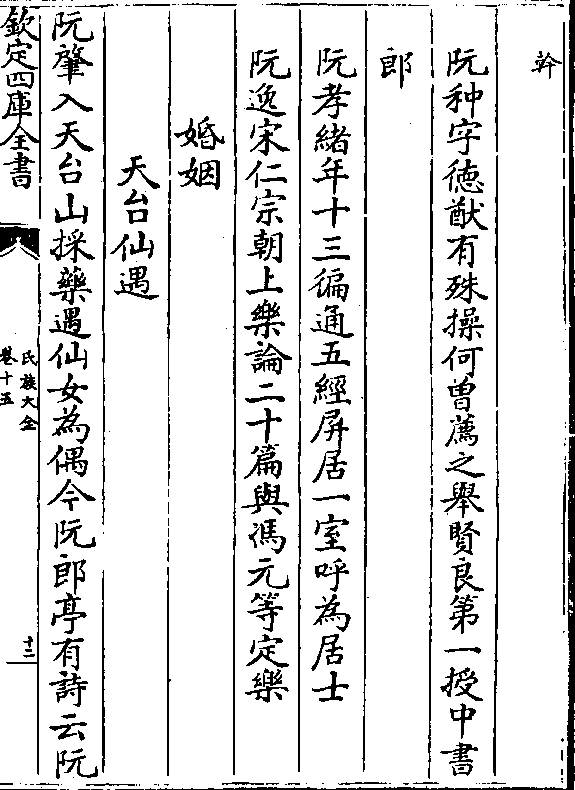 幹
阮种字徳猷有殊操何曽薦之舉賢良第一授中書
郎
阮孝緒年十三徧通五經屏居一室呼為居士
阮逸宋仁宗朝上樂論二十篇與馮元等定樂
婚姻
天台仙遇
阮肇入天台山採藥遇仙女為偶今阮郎亭有詩云阮
欽定四庫全書
氏族大全
卷十五
十二